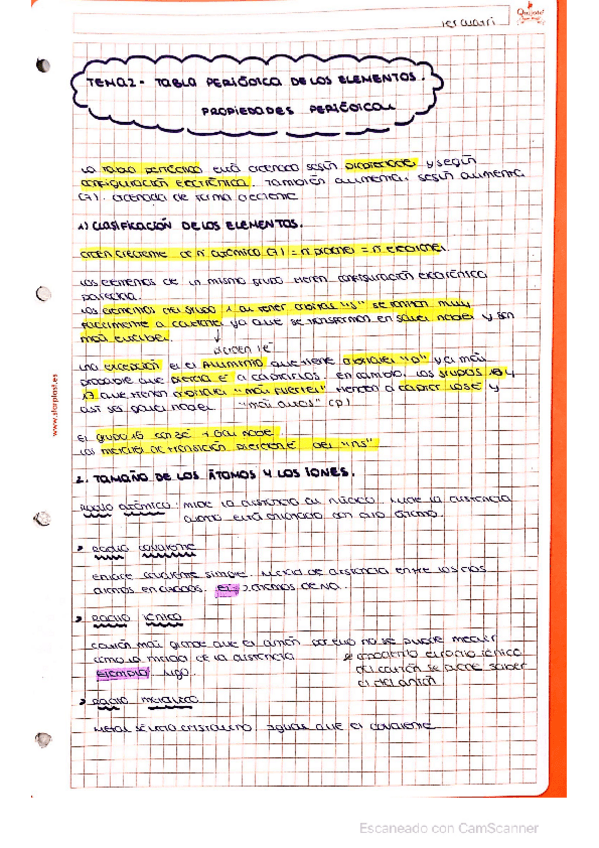 1er cuatri
TEMA 2 - TABLA PERIÓDICA DE LOS ELEMENTOS.
PROPIEDADES PERIÓDICAS
La tabla periódica está ordenada según propiedades y según
configuración electrónica. También aumenta, según aumenta
(Z). ordenada de forma creciente
1) CLASIFICACIÓN DE LOS ELEMENTOS.
orden creciente de nº atómico (Z) = nº protones = nº electrones.
Los elementos de un mismo grupo tienen configuración electrónica
parecida.
Los elementos del grupo 1 al tener orbitales "s" se ionizan muy
fácilmente a cationes ya que se transforman en gases nobles y son
más estables.
pierden 1e⁻
una excepción es el Aluminio que tiene orbitales "p" y es más
probable que pierda e⁻ a captarlos. en cambio, los grupos 16 y
17 que tienen orbitales "más fuertes" tienden a captar los e⁻ y
así ser gases nobles "más altos" (p)
El grupo 16 con 2e⁻ → Gas noble
Los metales de transición pierden e⁻ del "ns"
2. TAMAÑO DE LOS ÁTOMOS Y LOS IONES.
Radio atómico: mide la distancia al núcleo. Mide la distancia
cuando está enlazado con otro átomo.
Radio covalente
enlace covalente simple. Mitad de distancia entre los dos
átomos enlazados. ej: 2 átomos de
Radio iónico
catión más grande que el anión por ello no se puede medir
como la mitad de la distancia
se
el radio iónico
del catión se puede saber
el del anión
ejemplos
Radio metálico
Metal sólido cristalino. Igual que el covalente
www.starplast.es
Escaneado con CamScanner